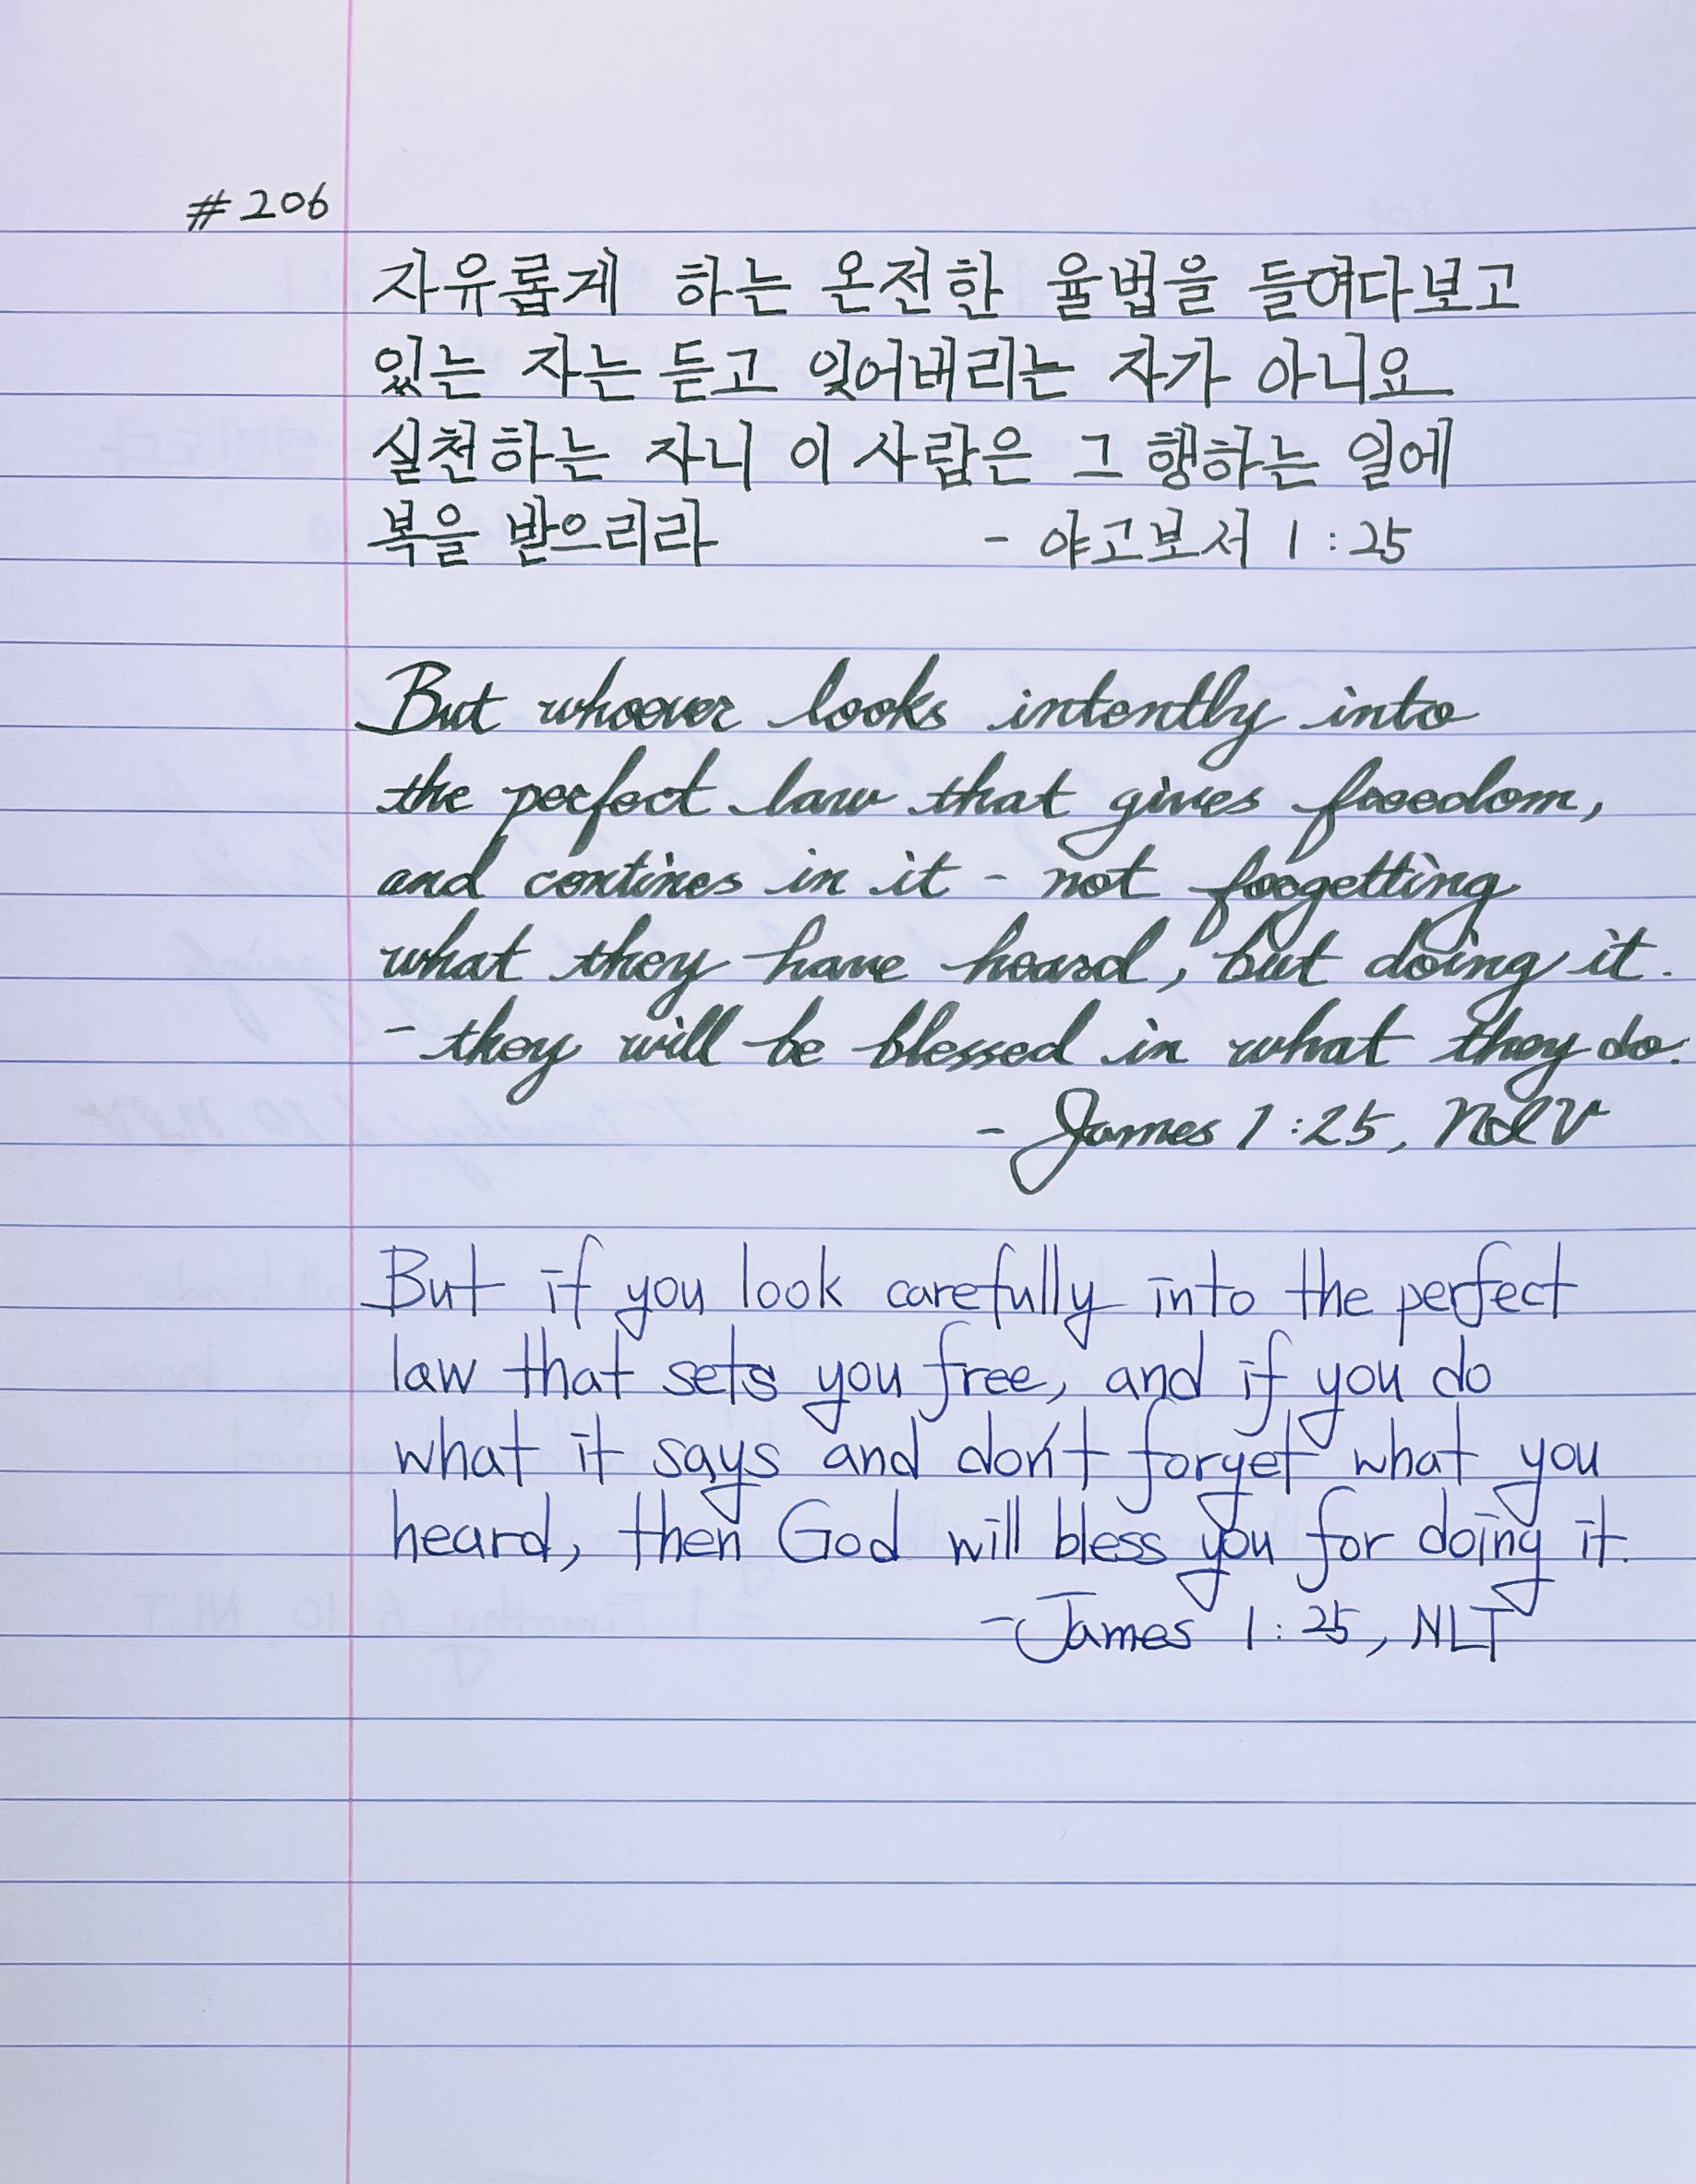 #206
자유롭게 하는 온전한 율법을 들여다보고
있는 자는 듣고 잊어버리는 자가 아니요
실천하는 자니 이 사람은 그 행하는 일에
복을 받으리라 - 야고보서 1:25
But whoever looks intently into
the perfect law that gives freedom,
and contines in it - not forgetting
what they have heard, but doing it.
- they will be blessed in what they do.
- James 1:25, NIV
But if you look carefully into the perfect
law that sets you free, and if you do
what it says and don't forget what you
heard, then God will bless you for doing it.
- James 1:25, NLT